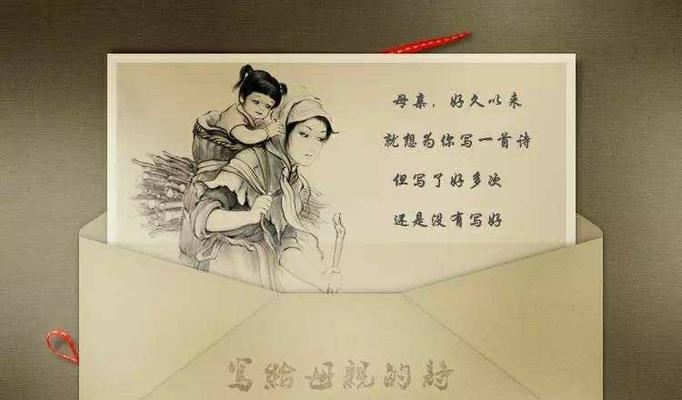 母亲，好久以来
就想为你写一首诗
但写了好多次
还是没有写好
寫給母親的詩